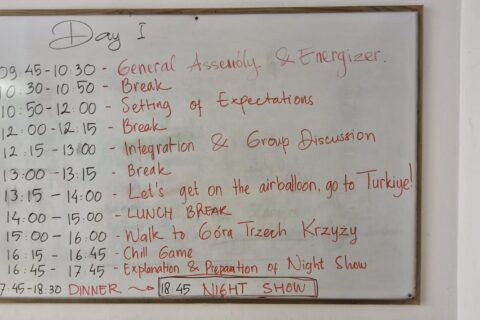 Day I
09:45-10:30 - General Assembly & Energizer.
10:30-10:50 - Break
10:50-12:00 - Setting of Expectations
12:00-12:15 - Break
12:15-13:00 - Integration & Group Discussion
13:00-13:15 - Break
13:15-14:00 - Let's get on the airballoon, go to Türkiye!
14:00-15:00 - LUNCH BREAK
15:00-16:00 - Walk to Góra Trzech Krzyży
16:15-16:45 - Chill Game
16:45-17:45 - Explanation & Preparation of Night Show
7:45-18:30 DINNER → 18:45 NIGHT SHOW